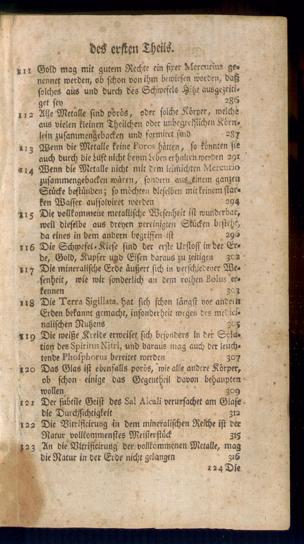 des ersten Theils.
111 Gold mag mit gutem Rechte ein fixer Mercurius ge-
nennet werden, ob schon von ihm bewiesen worden, daß
solches aus und durch des Schwefels Hitz ausgezeiti-
get sey 286
112 Alle Metalle sind porös, oder solche Körper, welche
aus vielen kleinen Theilchen oder unbegreiflichen Körn-
lein zusammengebacken und formiret sind 287
113 Wenn die Metalle keine Poros hätten, so könnten sie
auch durch die Luft nicht beym Leben erhalten werden 291
114 Wenn die Metalle nicht mit dem Mercurio
zusammengebacken wären, sondern aus einem ganzen
Stücke bestünden; so möchten dieselben mit keinem star-
ken Wasser aufsolviret werden 294
115 Die vollkommene metallische Wesenheit ist wunderbar,
weil dieselbe aus dreyen vereinigten Stücken bestehe,
da eines in dem andern begriffen ist
116 Die Schwefel-Kiese sind der erste Urstoff in der Er-
de, Gold, Kupfer und Eisen daraus zu zeitigen 302
117 Die mineralische Erde äußert sich in verschiedener We-
senheit, wie wir sonderlich an dem rothen Bolus er-
kennen 303
118 Die Terra Sigillata hat sich schon längst vor andern
Erden bekannt gemacht, insonderheit wegen des medici-
nalischen Nutzens 305
119 Die weiße Kreide erweiset sich besonders in der Solu-
tion des Spiritus Nitri, und daraus mag auch der leuch-
tende Phosphorus bereitet werden 307
120 Das Glas ist ebenfalls porös, wie alle andere Körper,
ob schon einige das Gegentheil davon behaupten
wollen 309
121 Der subtile Geist des Sal Alcali verursachet am Glase
die Durchsichtigkeit 312
122 Die Vitrificirung in dem mineralischen Reiche ist der
Natur vollkommenstes Meisterstück 315
123 An die Vitrificirung der vollkommenen Metalle, mag
die Natur in der Erde nicht gelangen 316
124 Die